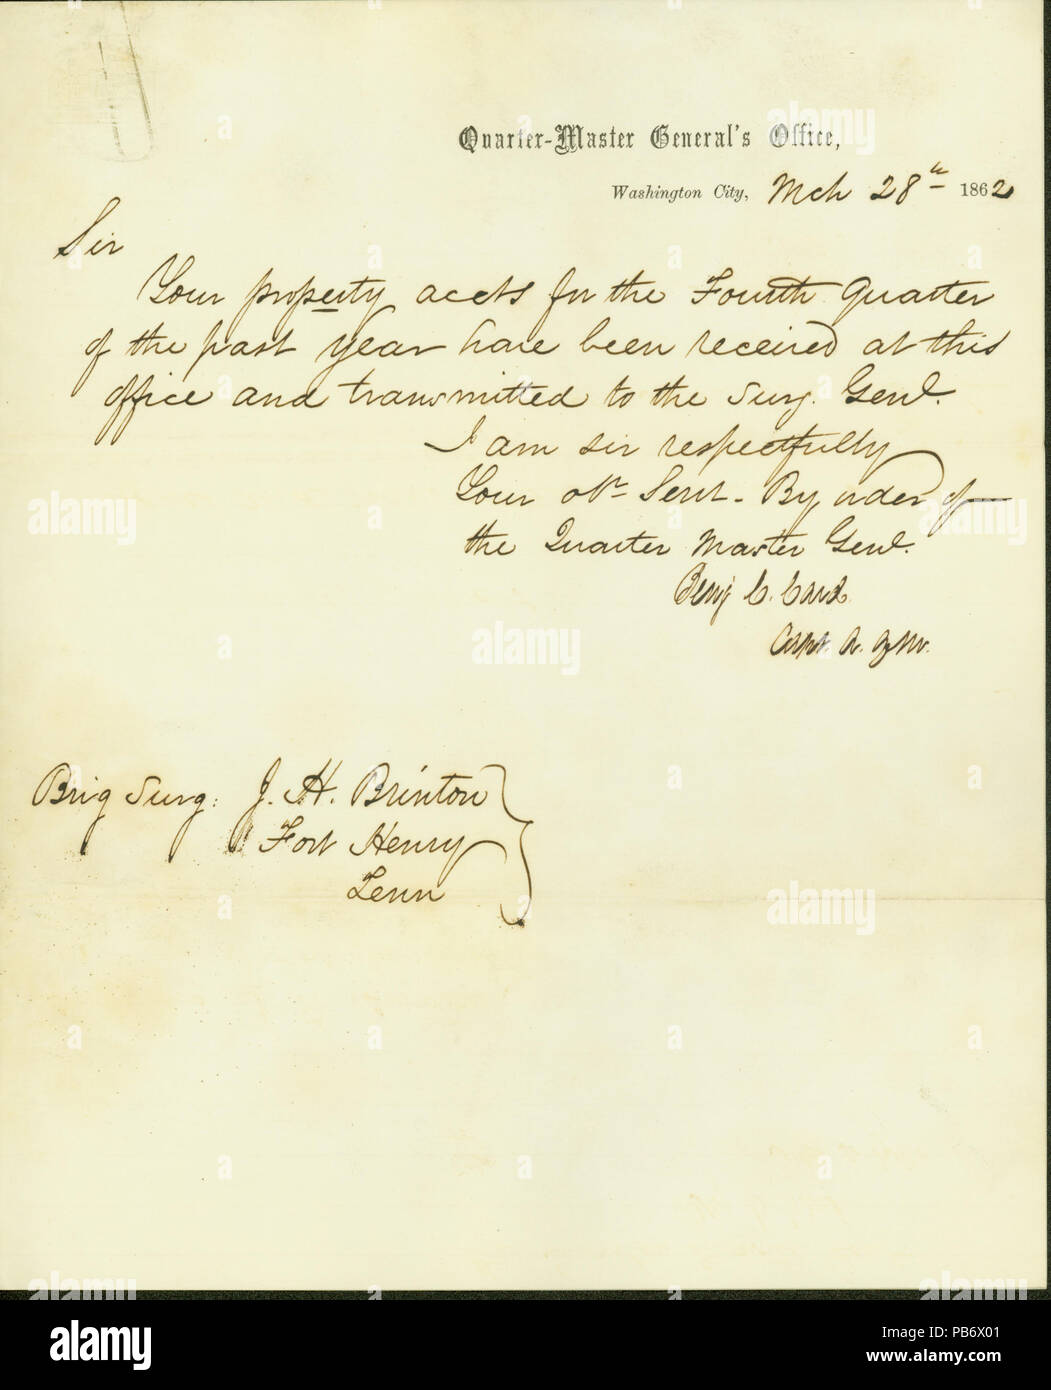 Quarter-Master General's Office,
Washington City, Mch 28th 1862
Sir
Your property accts for the Fourth Quarter
of the past year have been received at this
office and transmitted to the Surg. Genl.
I am sir respectfully
Your obt Servt. By order of
the Quarter Master Genl.
Benj C. Card
Capt. A. Q M.
Brig Surg: J. H. Brinton
Fort Henry
Tenn
alamy
Image ID: PB6X01
www.alamy.com